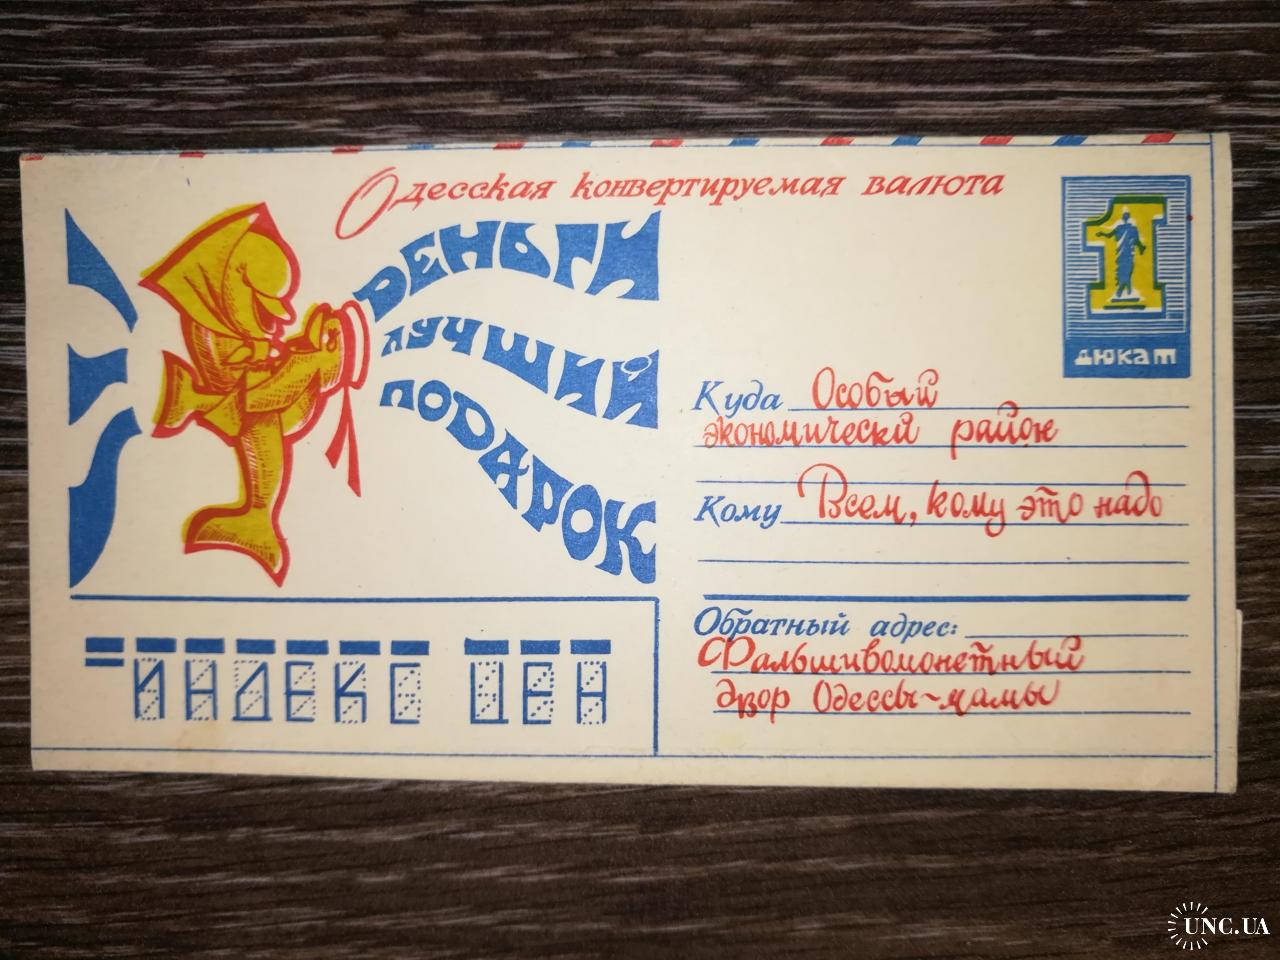 Одесская конвертируемая валюта
ДЕНЬГИ
ЛУЧШИЙ
ПОДАРОК
1
дюкат
Куда Особый
экономически район
Кому Всем, кому это надо
Обратный адрес:
Фальшивомонетный
двор Одессы-мамы
ИНДЕКС ЦЕН
UNC.UA